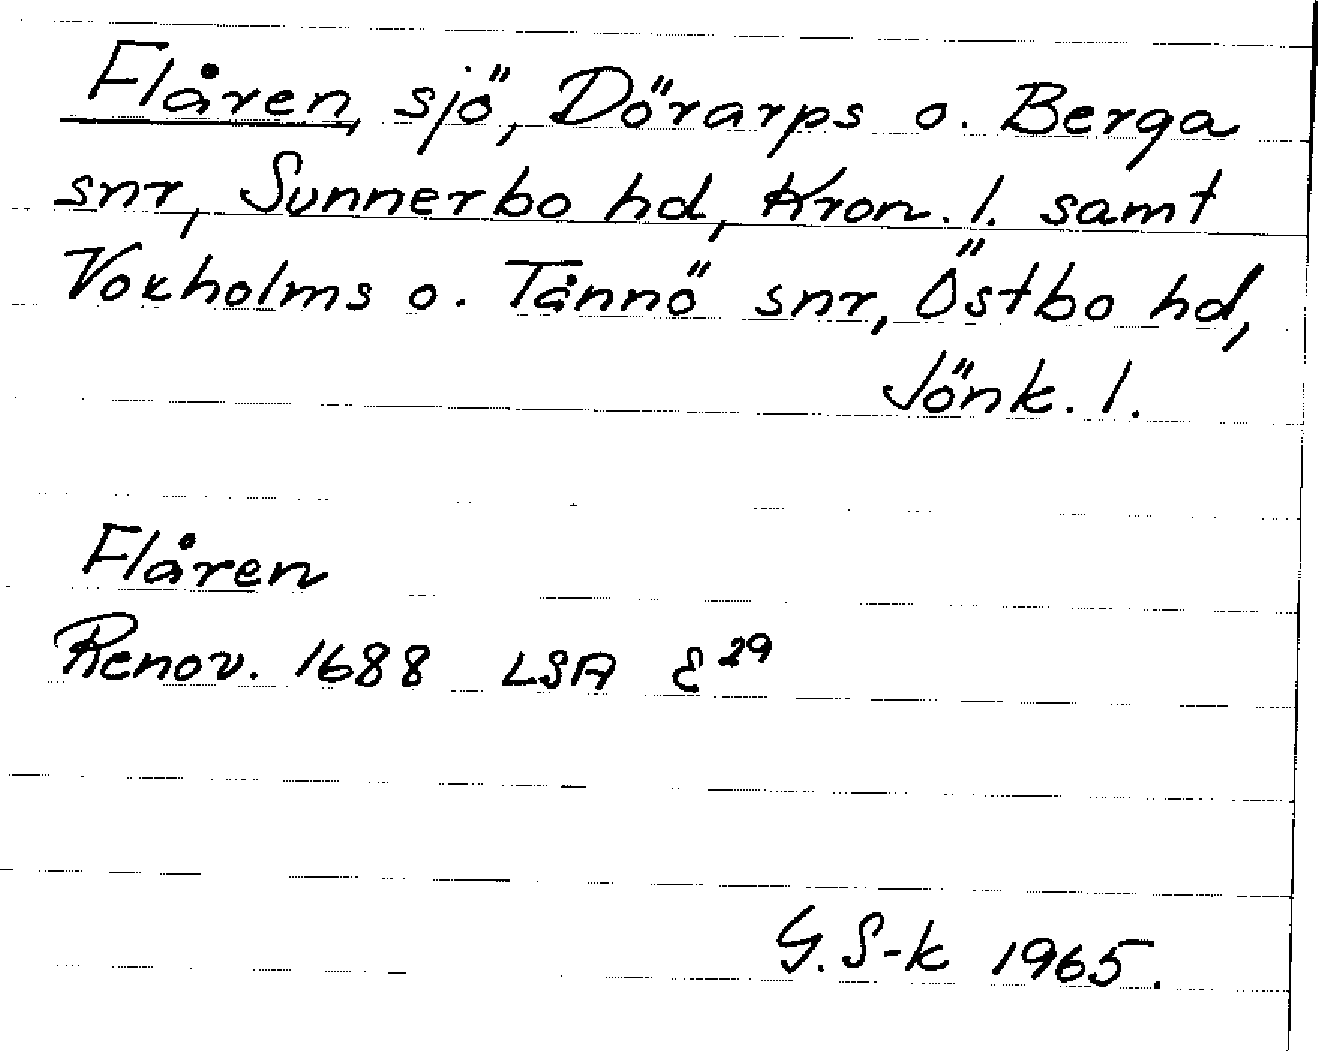 Flåren, sjö, Dörarps o. Berga
snr, Sunnerbo hd, Kron. l. samt
Voxholms o. Tånnö snr, Östbo hd,
Jönk. l.
Flåren
Renov. 1688 LSA E29
G. S-k 1965.